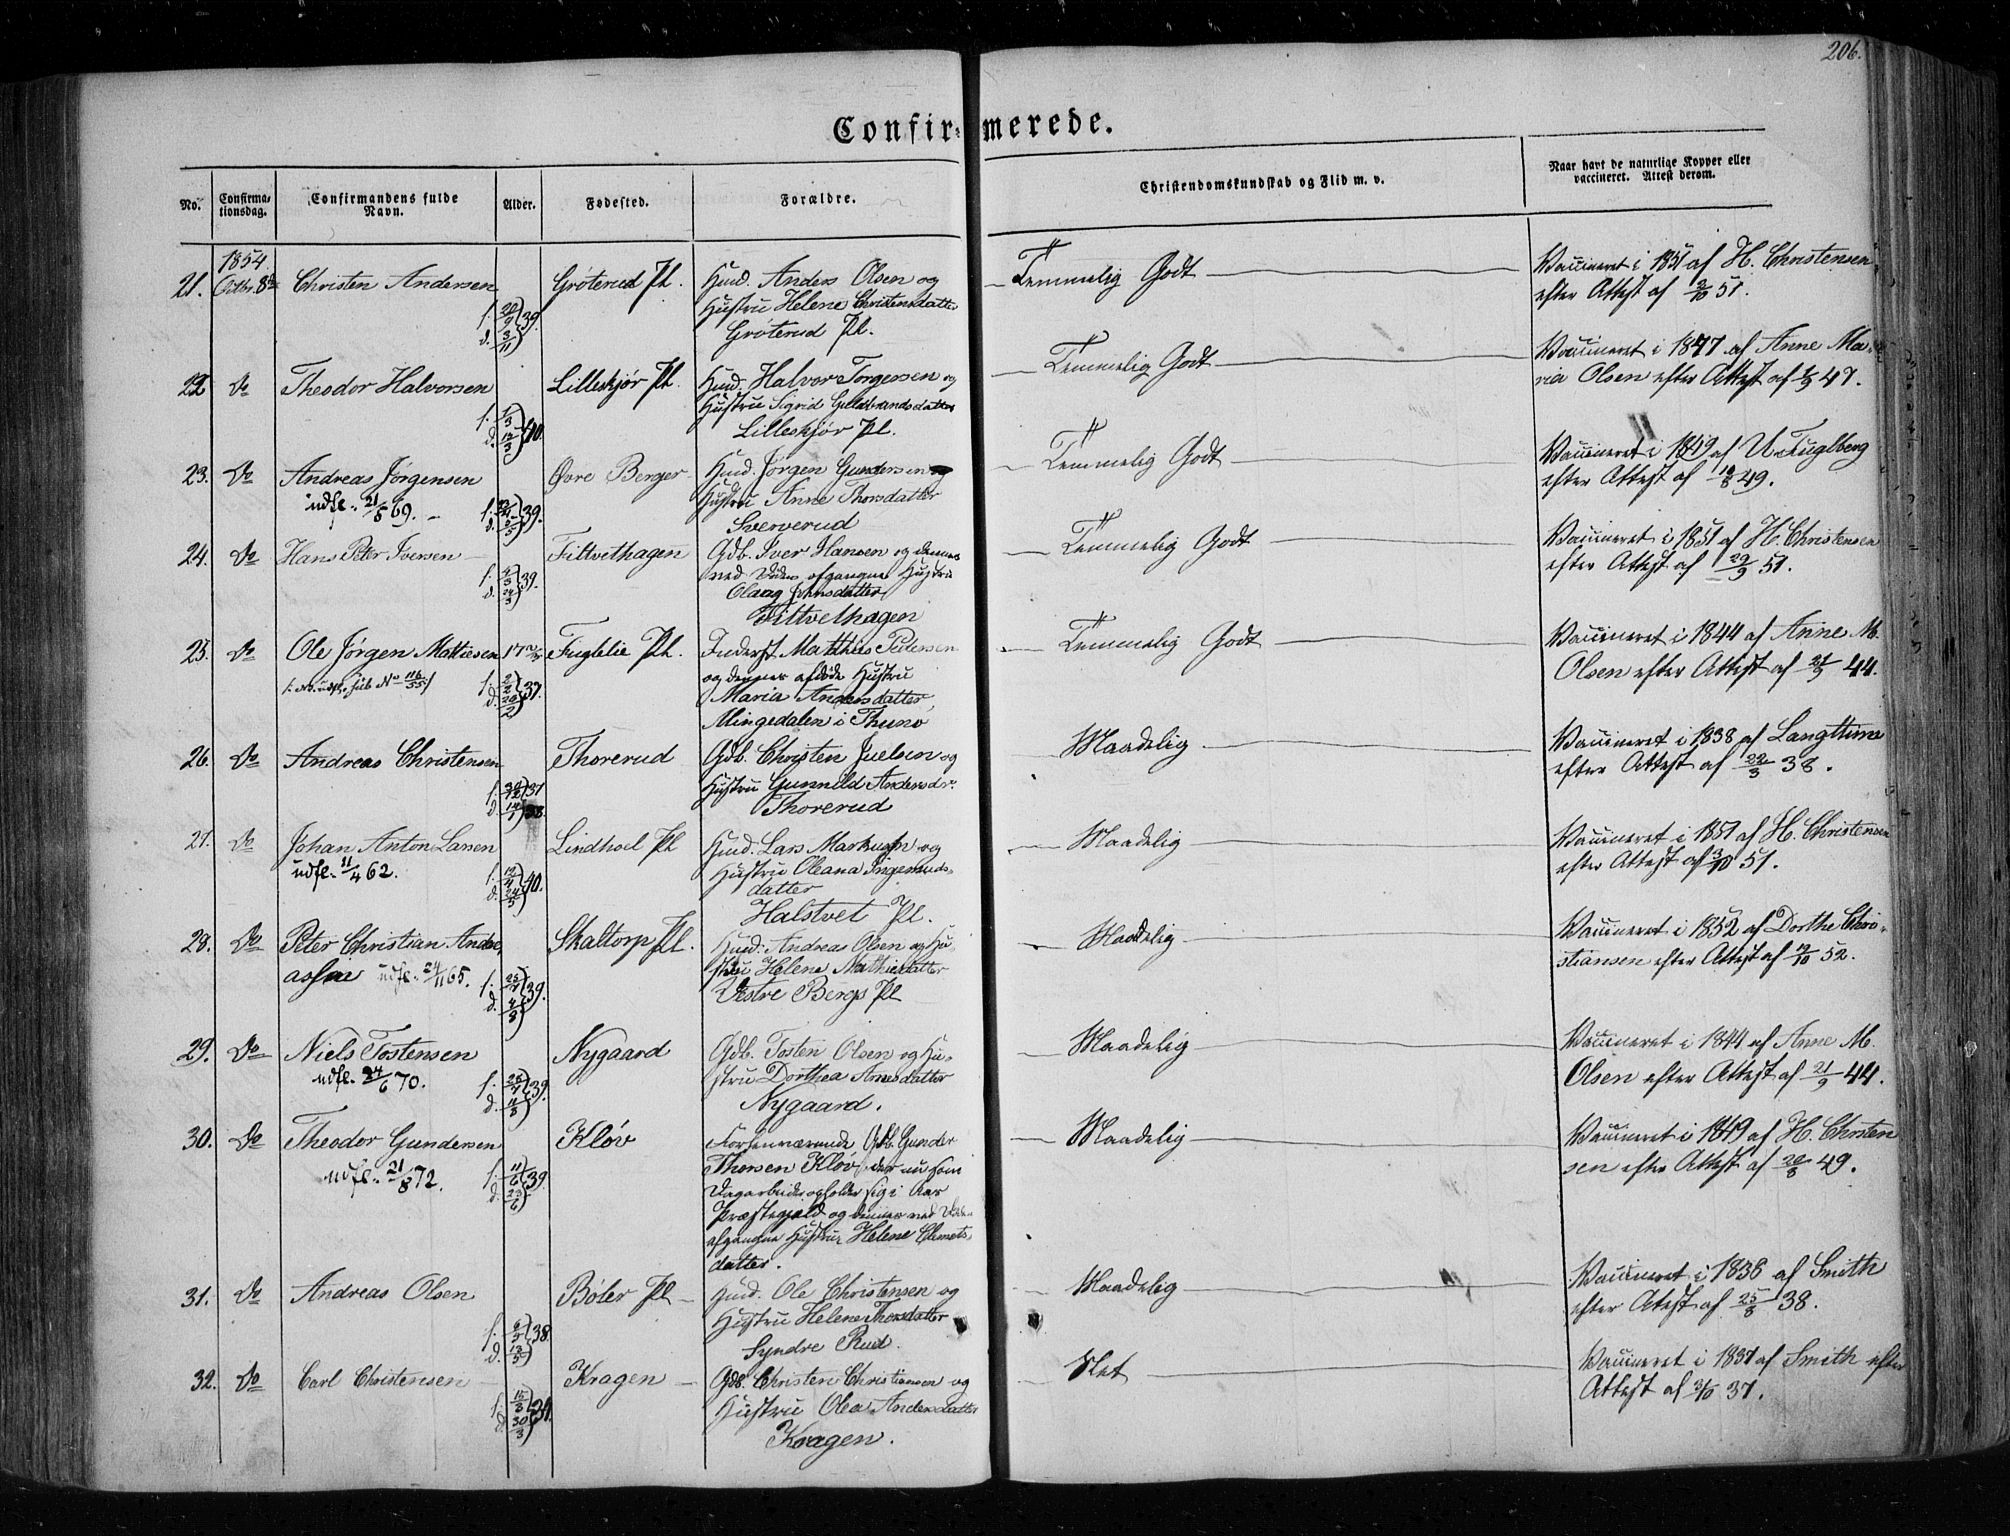 206.
Confirmerede.
No.
Confirma-
tionsdag.
Confirmandens fulde
Navn.
Alder.
Fødested.
Forældre.
Christendomskundskab og Flid m. v.
Naar havt de naturlige Kopper eller
vaccineret. Attest derom.
1854
21. Octbr. 8de Christen Andersen Grøterud Pl. Husd. Anders Olsen og
f. 20/9 39. Hustru Helene Christensdatter
d. 3/11 Grøterud Pl.
Temmelig Godt
Vaccineret i 1851 af H. Christensen
efter Attest af 3/10 51.
22. Do Theodor Halvorsen Lilleskjør Pl. Husd. Halvor Torgersen og
Hustru Sigrid Guldbrandsdatter
f. 1/3 40. d. 12/3 Lilleskjør Pl.
Temmelig Godt
Vaccineret i 1847 af Anne Ma-
ria Olsen efter Attest af 47.
23. Do Andreas Jørgensen Øvre Berger Husd. Jørgen Gundersen og
udfl. 21/5 69. f. 39. d. Hustru Anne Thorsdatter
Sververud
Temmelig Godt
Vaccineret i 1849 af U. Fuglberg
efter Attest af 49.
24. Do Hans Peter Iversen Filtvethagen Gdb. Iver Hansen og dennes
f. 4/3 39. ved Døden afgangne Hustru
d. 24/3 Olaug Jensdatter
Filtvethagen
Temmelig Godt
Vaccineret i 1851 af H. Christensen
efter Attest af 29/9 51.
25. Do Ole Jørgen Mattiesen 17 Fuglelie Pl. Inderst Matthis Pedersen
og dennes afdøde Hustru
f. 2/2 37. Maria Andersdatter,
d. 20/2 Mingedalen i Thunø
Temmelig Godt
Vaccineret i 1844 af Anne M.
Olsen efter Attest af 21/9 44.
26. Do Andreas Christensen Thorerud Gdb. Christen Juelsen og
f. 37 Hustru Gunnild Andersdr.
d. 14/1 38. Thorerud
Maadelig
Vaccineret i 1838 af Langttime
efter Attest af 22/3 38.
27. Do Johan Anton Larsen Lindhoel Pl Husd. Lars Markussen og
udfl. 11/4 62. f. 12/4 40. Hustru Oleana Ingemuds-
d. 24/5 datter
Halstvet Pl.
Maadelig
Vaccineret i 1851 af H. Christensen
efter Attest af 3/10 51.
28. Do Peter Christian Andre- Skaltorp Pl. Husd. Andreas Olsen og Hu-
assen udfl. 24/11 65. f. 25/7 39. stru Helene Mathisdatter
d. 4/8 Vestre Bergs Pl
Maadelig
Vaccineret i 1852 af Dorthe Chri-
stiansen efter Attest af 52.
29. Do Niels Tostensen Nygaard Gdb. Tosten Olsen og Hu-
udfl. 24/6 70. f. 26/7 39. stru Dorthea Arnesdatter
d. 11/8 Nygaard.
Maadelig
Vaccineret i 1844 af Anne M.
Olsen efter Attest af 21/9 44.
30. Do Theodor Gundersen Kløv Forhenværende Gdb. Gunder
udfl. 21/8 72. f. 11/6 39. Thorsen Kløv, der nu som
d. 23/6 Dagarbeider opholder sig i Aas
Præstegjeld og dennes ved Døden
afgangne Hustru Helene Clemets-
datter.
Maadelig
Vaccineret i 1849 af H. Christen
sen efter Attest af 20/8 49.
31. Do Andreas Olsen Bøler Pl Husd. Ole Christensen og
f. 6/5 38. Hustru Helene Thorsdatter
d. 13/5 Syndre Rud.
Maadelig
Vaccineret i 1838 af Smith
efter Atest af 25/8 38.
32. Do Carl Christensen Kragen Gdb. Christen Christiansen og
f. 15/3 Hustru Olea Andersdatter
d. 30/3 Kragen.
Slet
Vaccineret i 1837 af Smith efter
Attest af 3/10 37.